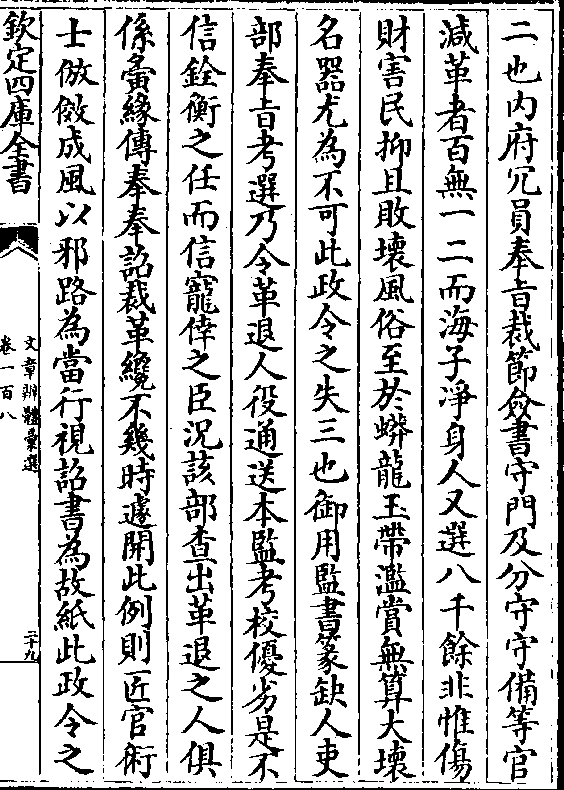 二也内府冗員奉旨裁節僉書守門及分守守備等官
減革者百無一二而海子淨身人又選八千餘非惟傷
財害民抑且敗壞風俗至於蟒龍玉帶濫賞無算大壞
名器尤為不可此政令之失三也御用監書篆缺人吏
部奉旨考選乃令革退人役通送本監考校優劣是不
信銓衡之任而信寵倖之臣況該部查出革退之人俱
係夤緣傳奉奉詔裁革纔不幾時遽開此例則匠官術
士倣傚成風以邪路為當行視詔書為故紙此政令之
欽定四庫全書
文章辨體彙選
卷一百八
二十九